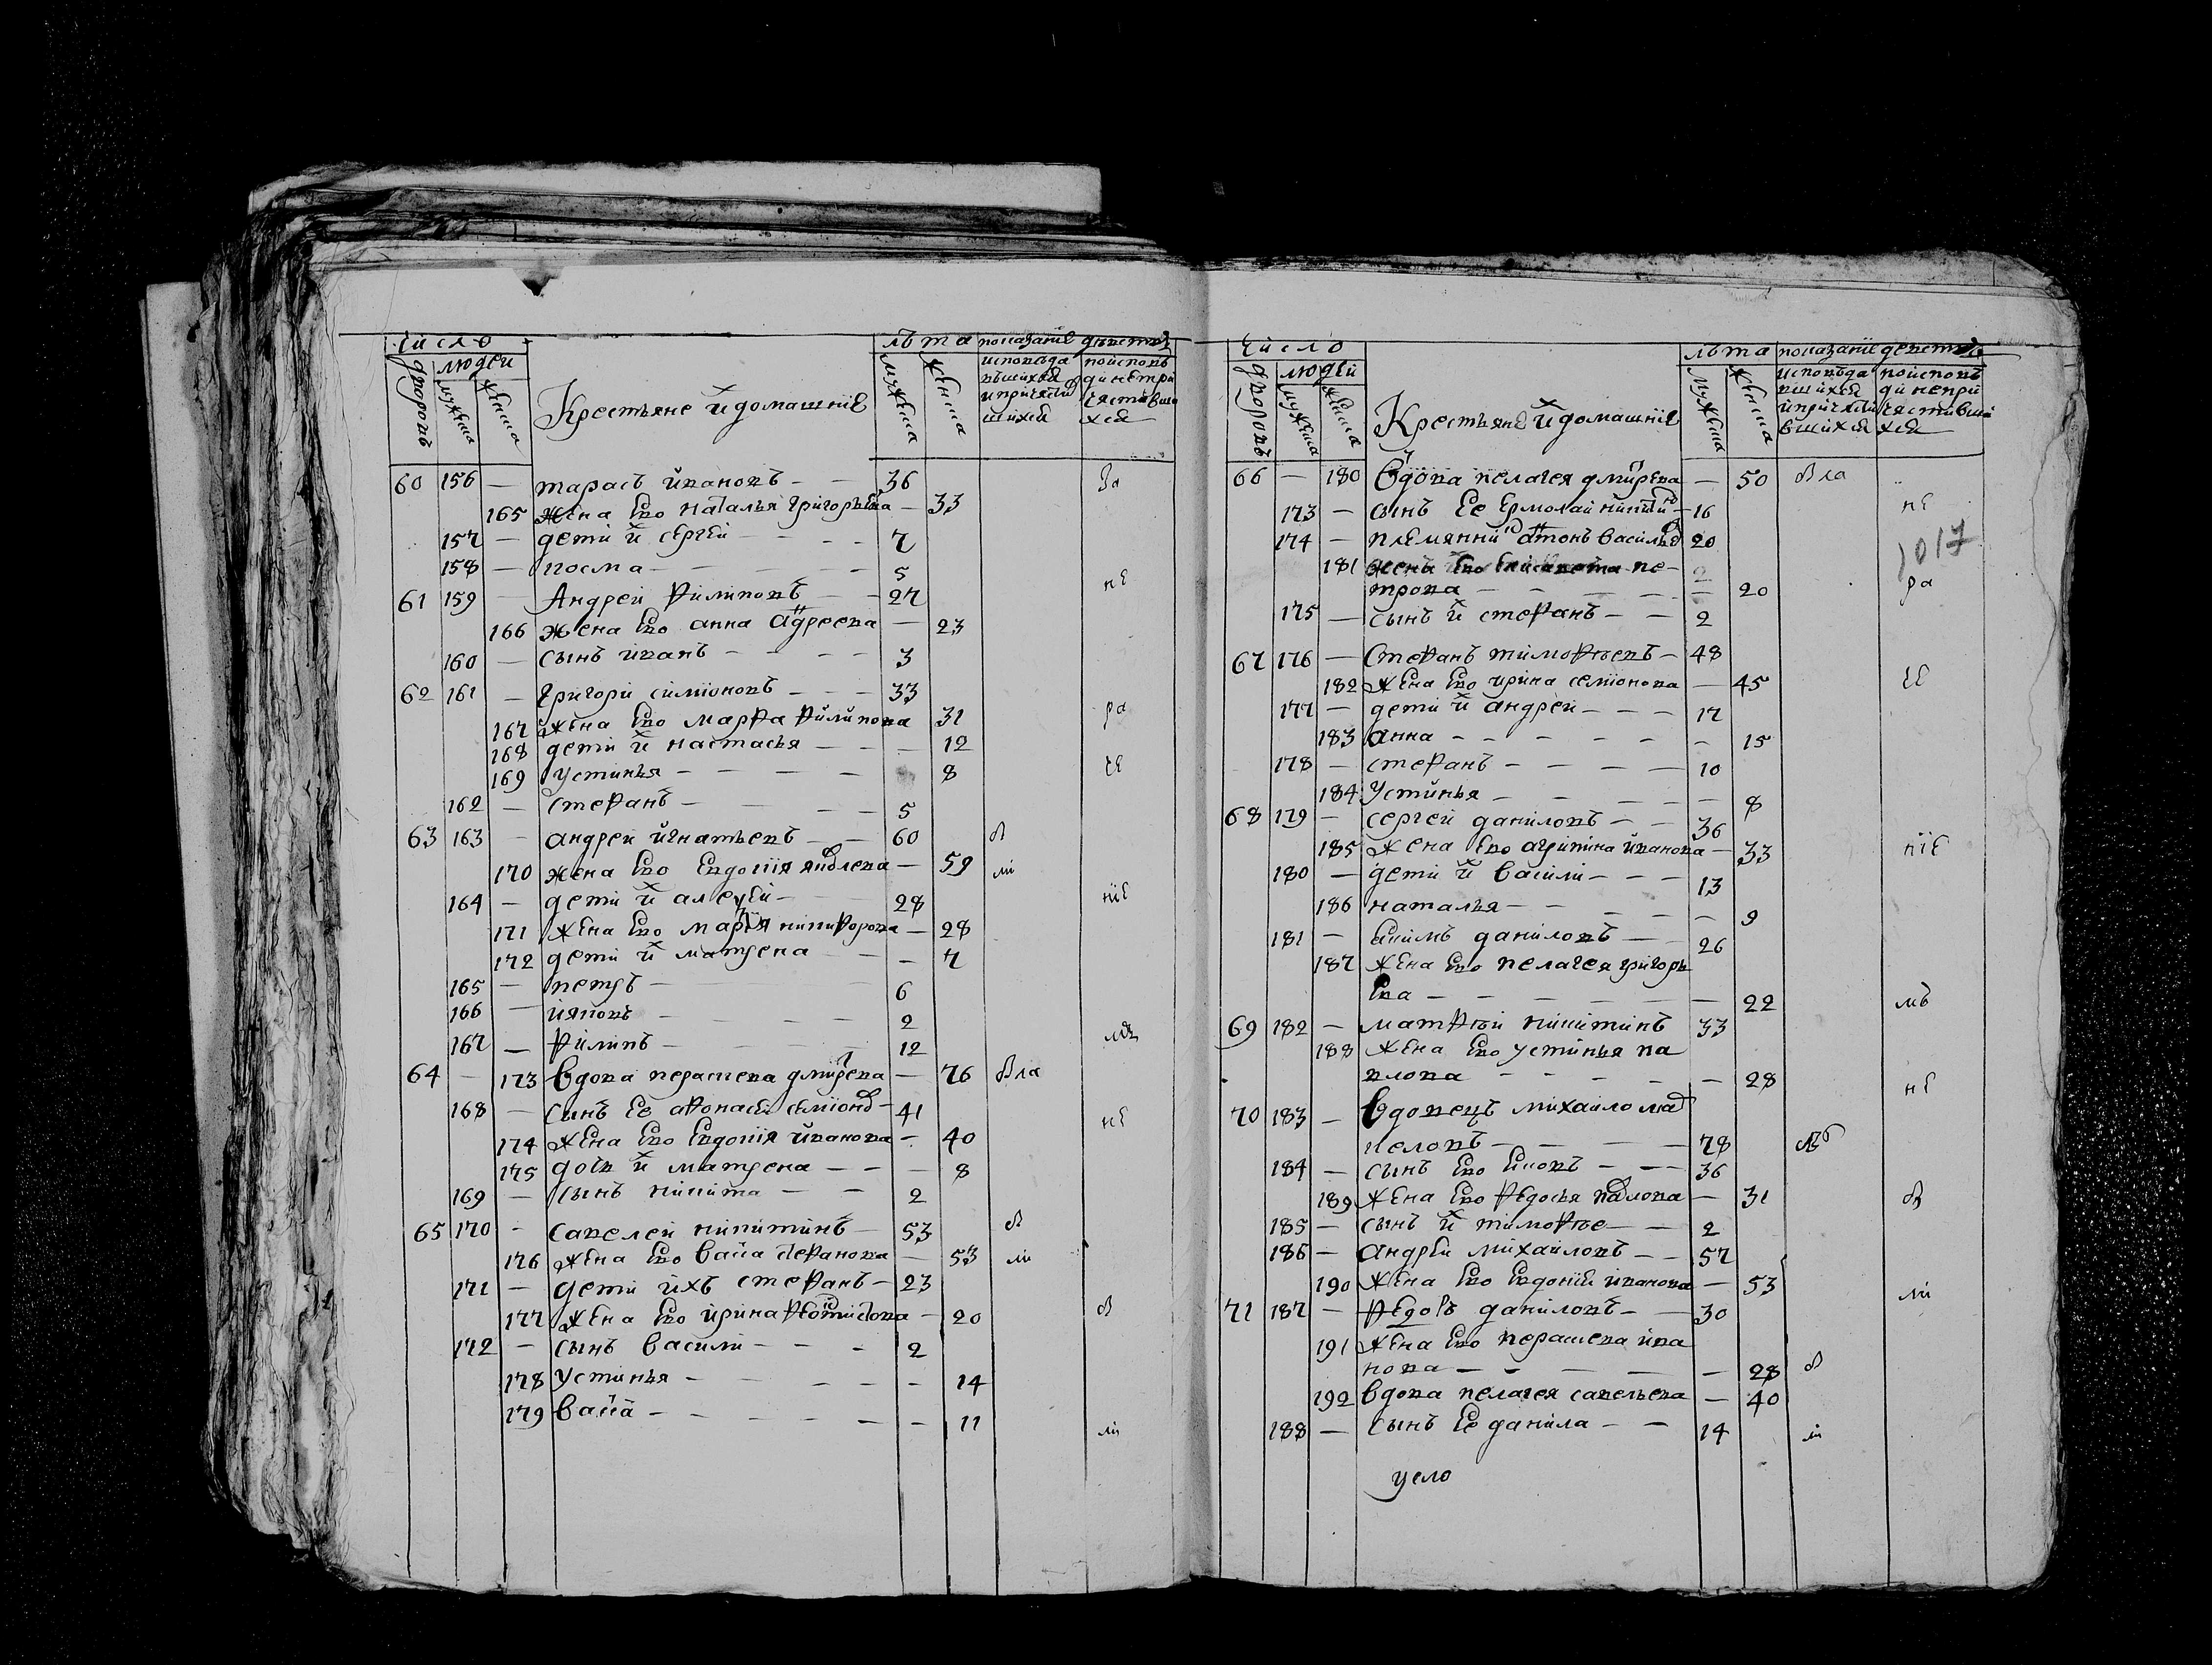 Число
дворовъ людей
мужеска женска
Крестьяне и домашніе
лѣта
мужеска женска
показаніе действъ
исповѣда вшихся и причасти вшихся
по исповѣ ди не при частивши хся
60 156 — тарасъ ивановъ — — 36 За
165 жена ево наталья григорьева — 33
157 — дети их сергей — — — 7
158 — косма — — — — 5
61 159 — Андреи филиповъ — — 27 не
166 жена ево анна андреева — 23
160 — сынъ иванъ — — — — 3
62 161 — григори симионовъ — — — 33
167 жена ево марфа филипова 31 ра
168 дети их настасья — — — 12
169 устинья — — — — 8 че
162 — стефанъ — — — 5
63 163 — андреи игнатьевъ — — 60 в
170 жена ево евдокия яковлева — 59 ли
164 — дети их алексеи — 28 ніе
171 жена ево мария никифорова — 28
172 дети их матрена — 7
165 — петръ — 6
166 — иаковъ — — — — 2
167 — филипъ — — — — 12
64 — 173 вдова парасковья дмитрева — 76 вла
168 — сынъ ее афонасеи симионов — 41
174 жена ево евдокия иванова — 40 не
175 дочь их матрена — — — 8
169 — сынъ никита — — 2
65 170 — савелеи никитинъ — 53 в
176 жена ево васа стефанова — 53 ли
171 — дети ихъ стефанъ — 23
177 жена ево ирина — 20 в
172 — сынъ васили — — — 2
178 устинья — — — — — 14
179 васа — — — — — — 11 ли
Число
дворовъ людей
мужеска женска
Крестьяне и домашніе
лѣта
мужеска женска
показаніе действъ
исповѣда вшихся и причасти вшихся
по исповѣ ди не при частивши хся
66 — 180 вдова пелагея дмитрева — 50 вла
173 — сынъ ее ермолаи никитин — 16 не
1017
174 — племянник антонъ васильев 20
181 жена ево елисавета пе-
трова — — — — — — 20 ра
175 — сынъ их стефанъ — — 2
67 176 — Стефанъ тимофеевъ — 48
182 жена ево ирина семионова — 45 че
177 — дети их андреи — — — 17
183 анна — — — — — — 15
178 — стефанъ — — — — 10
184 устинья — — — — — 8
68 179 — сергеи даниловъ — — 36
185 жена ево агрипина иванова — 33 ніе
180 — дети их васили — — — 13
186 наталья — — — — — 9
181 — екимъ даниловъ — — 26
187 жена ево пелагея григорь
ева — — — — — — 22 мъ
69 182 — матфеи никитинъ 33
188 жена ево устинья па
влова — — — — — 28
70 183 — вдовецъ михаило мар не
келовъ — — — — 78
184 — сынъ ево — — — 36
189 жена ево федосья павлова — 31 в
185 — сынъ их тимофее — — 2
186 — андреи михаиловъ — — 57
190 жена ево евдокия иванова — 53
71 187 — федоръ даниловъ — — 30 ли
191 жена ево парасковья ива
нова — — — — — 28 в
192 вдова пелагея савельева — 40
188 — сынъ ее данила — — 14 ли
село